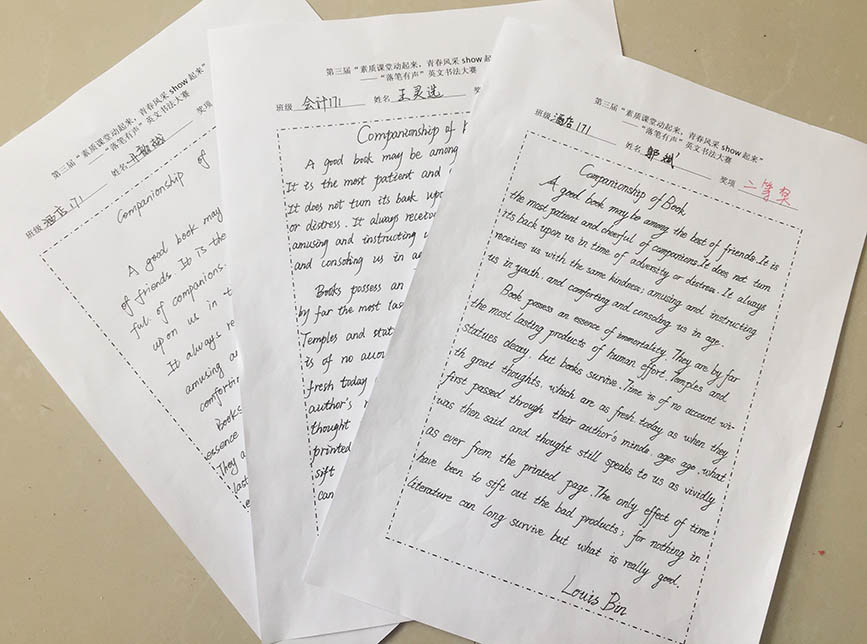 第三届“素质课堂动起来，青春风
“落笔有声”英文书法大赛
班级 酒店171 姓名
Companionship of
A good book may
of friends. It is the
ful. of companions.
upon us in t
It always re
amusing a
comfortin
Books
essence
They a
last
第三届“素质课堂动起来，青春风采 show 起来”
——“落笔有声”英文书法大赛
班级 会计171 姓名 王灵选 奖
Companionship of
A good book may be among
It is the most patient and
It does not turn its back upo
or distress. It always receive
amusing and instructing u
and consoling us in a
Books possess an
by far the most las
Temples and stat
is of no accou
fresh today
author's
thought
printed
sift
can
第三届“素质课堂动起来，青春风采 show 起来”
——“落笔有声”英文书法大赛
班级 酒店171 姓名 郭斌 奖项 二等奖
Companionship of Book
A good book may be among the best of friends. It is
the most patient and cheerful of companions. It does not turn
its back upon us in time of adversity or distress. It always
receives us with the same kindness; amusing and instructing
us in youth, and comforting and consoling us in age.
Book possess an essence of immortality. They are by far
the most lasting products of human effort. Temples and
statues decay, but books survive. Time is of no account wi-
th great thoughts, which are as fresh today as when they
first passed through their author's minds, ages ago. what
was then said and thought still speaks to us as vividly
as ever from the printed page. The only effect of time
have been to sift out the bad products; for nothing in
literature can long survive but what is really good.
Louis Bin